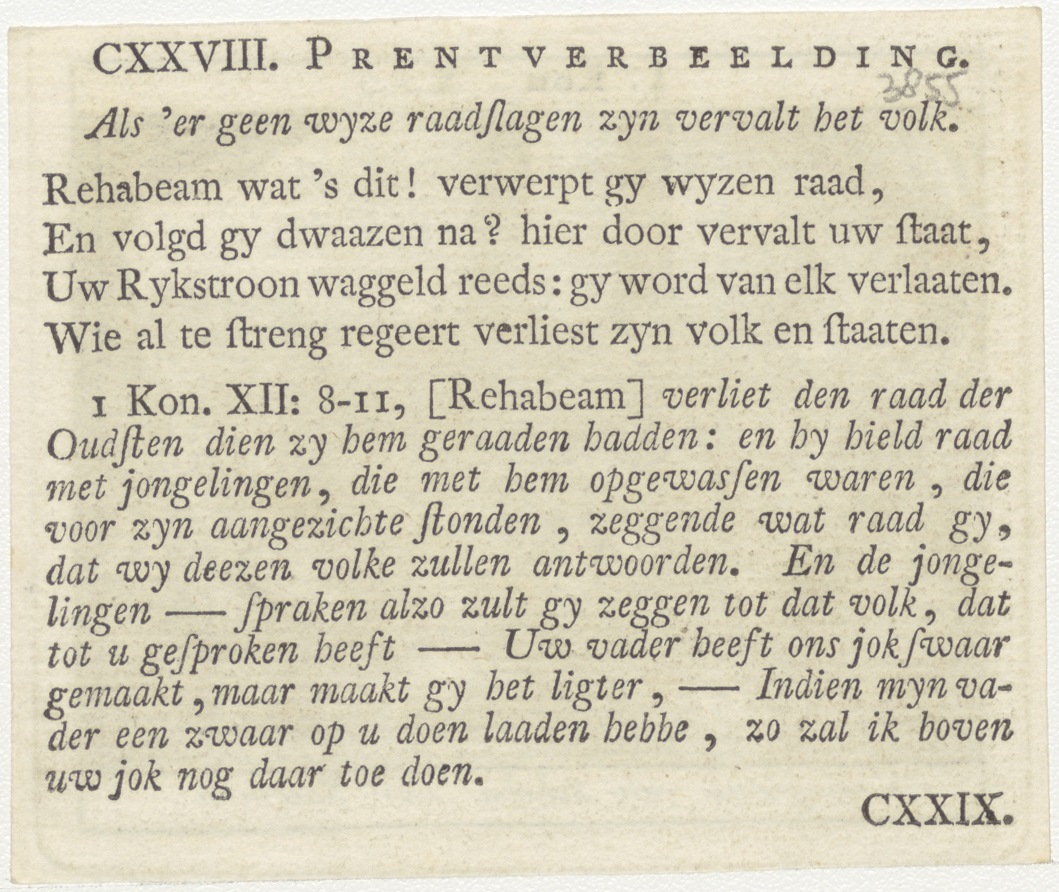 CXXVIII. PRENTVERBEELDING.
3855
Als 'er geen wyze raadſlagen zyn vervalt het volk.
Rehabeam wat 's dit! verwerpt gy wyzen raad,
En volgd gy dwaazen na? hier door vervalt uw ſtaat,
Uw Rykstroon waggeld reeds: gy word van elk verlaaten.
Wie al te ſtreng regeert verliest zyn volk en ſtaaten.
1 Kon. XII: 8-11, [Rehabeam] verliet den raad der
Oudſten dien zy hem geraaden hadden: en hy hield raad
met jongelingen, die met hem opgewasſen waren, die
voor zyn aangezichte ſtonden, zeggende wat raad gy,
dat wy deezen volke zullen antwoorden. En de jonge-
lingen — ſpraken alzo zult gy zeggen tot dat volk, dat
tot u geſproken heeft — Uw vader heeft ons jok ſwaar
gemaakt, maar maakt gy het ligter, — Indien myn va-
der een zwaar op u doen laaden hebbe, zo zal ik boven
uw jok nog daar toe doen.
CXXIX.